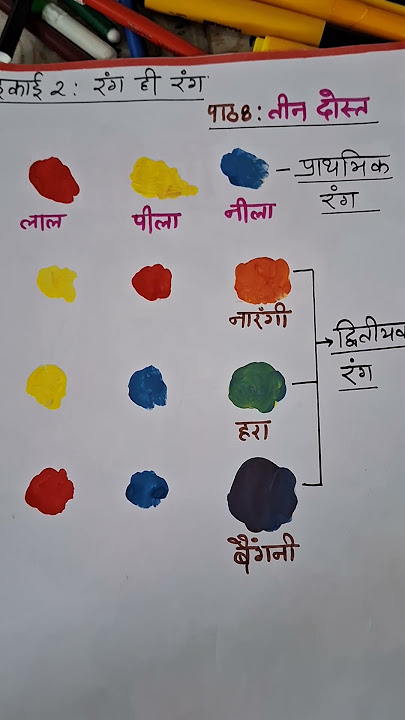 इकाई 2: रंग ही रंग
पाठ 8: तीन दोस्त
लाल पीला नीला प्राथमिक
रंग
नारंगी
द्वितीयक
रंग
हरा
बैंगनी